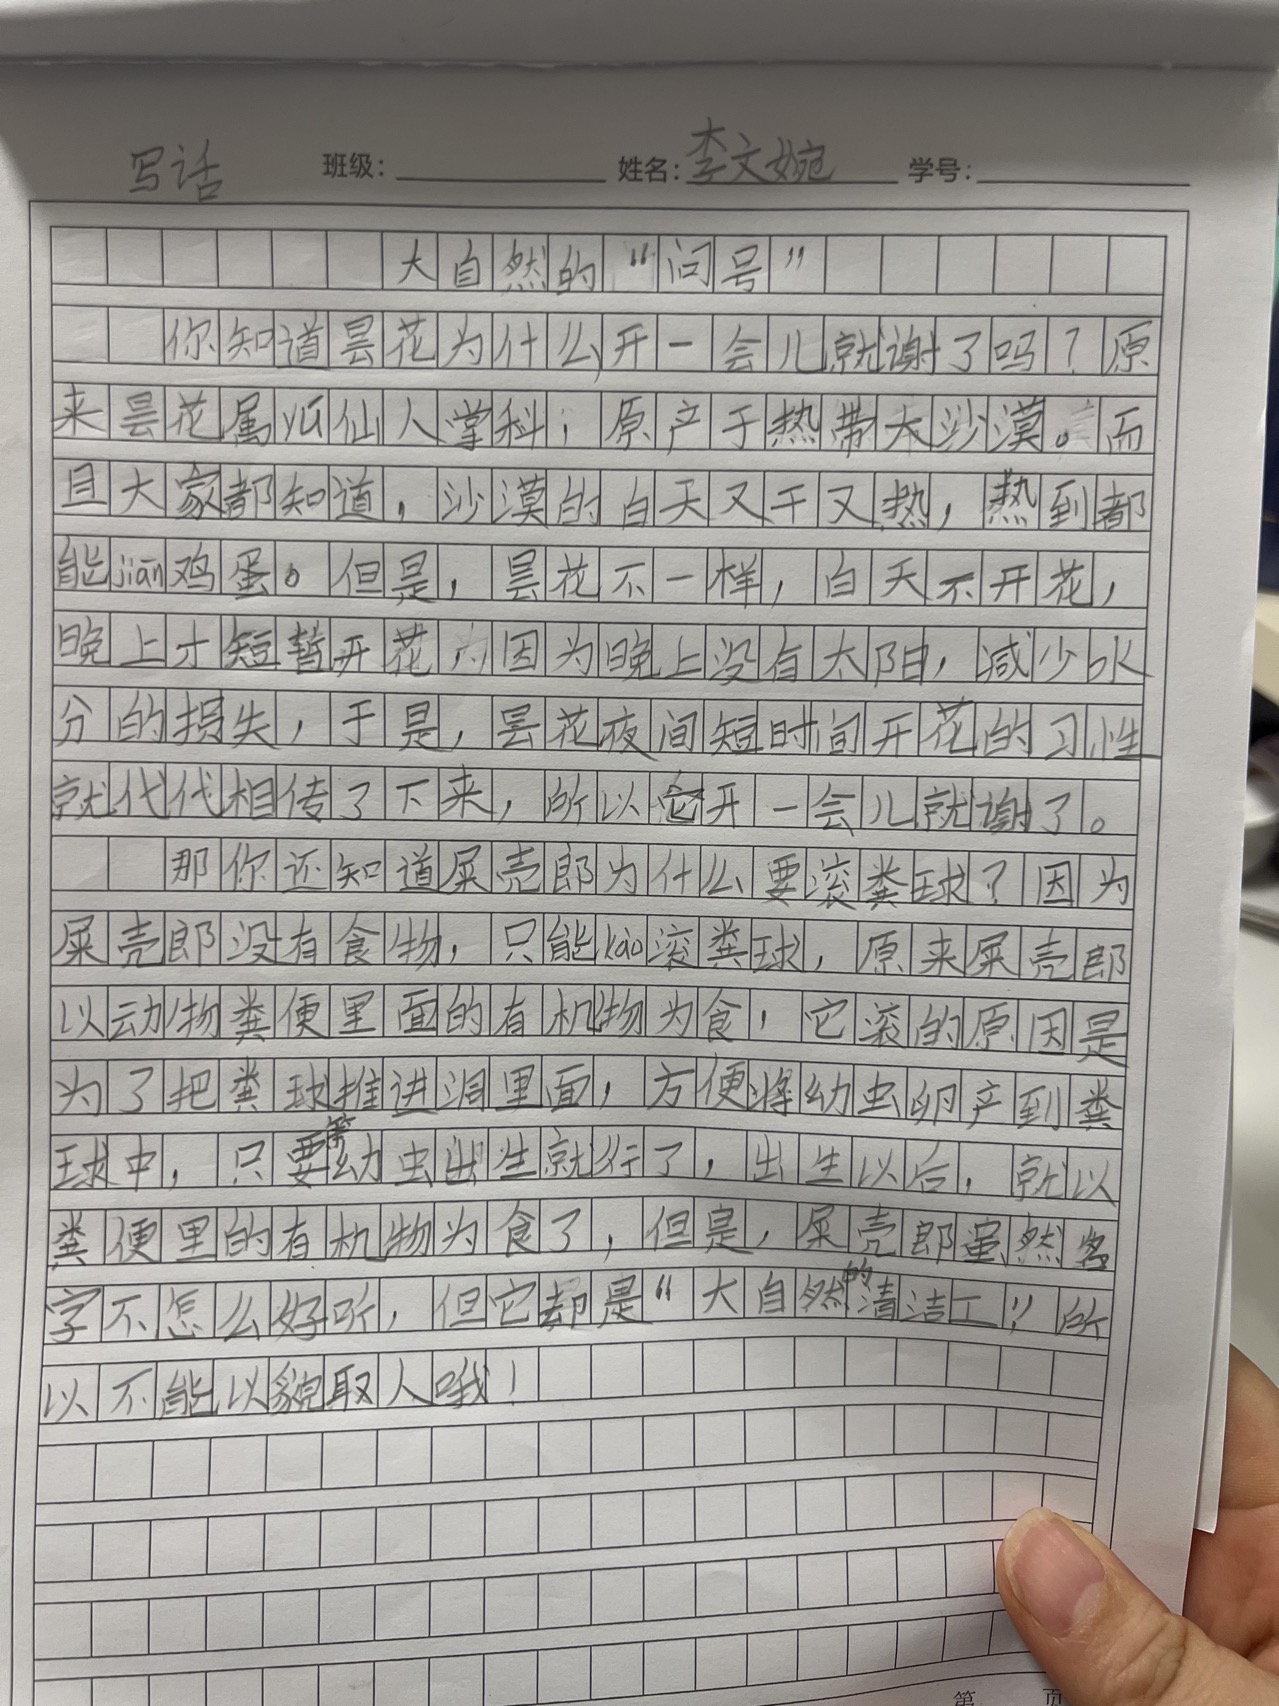 写话 班级： 姓名：李文婉 学号：
大自然的“问号”
你知道昙花为什么开一会儿就谢了吗？原
来昙花属以仙人掌科；原产于热带大沙漠。而
且大家都知道，沙漠的白天又干又热，热到都
能jiān鸡蛋。但是，昙花不一样，白天不开花，
晚上才短暂开花，因为晚上没有太阳，减少水
分的损失，于是，昙花夜间短时间开花的习性
就代代相传了下来，所以它开一会儿就谢了。
那你还知道屎壳郎为什么要滚粪球？因为
屎壳郎没有食物，只能kào滚粪球，原来屎壳郎
以动物粪便里面的有机物为食，它滚的原因是
为了把粪球推进洞里面，方便将幼虫卵产到粪
球中，只要等幼虫出生就行了，出生以后，就以
粪便里的有机物为食了，但是，屎壳郎虽然名
字不怎么好听，但它却是“大自然的清洁工”，所
以不能以貌取人哦！
第 页